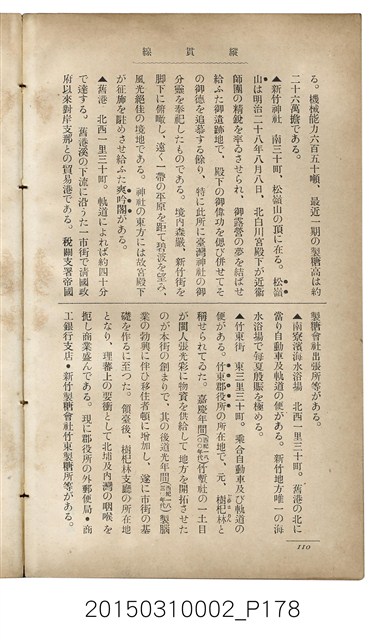 縱貫線
る。機械能力六百五十噸、最近一期の製糖高は約
二十六萬擔である。
▲新竹神社　南三十町、松嶺山の頂に在る。松嶺
山は明治二十八年八月八日、北白川宮殿下が近衞
師團の精銳を率ゐさせられ、御露營の夢を結ばせ
給ふた御遺跡地で、殿下の御偉功を偲び併せてそ
の御德を追慕する餘り、特に此所に臺灣神社の御
分靈を奉祀したものである。境內森嚴、新竹街を
脚下に俯瞰し、遠く一帶の平原を距て碧波を望み、
風光絕佳の境地である。神社の東方には故宮殿下
が征旆を駐めさせ給ふた爽吟閣がある。
▲舊港　北西一里三十町。軌道によれば約四十分
で達する。舊港溪の下流に沿うた一市街で淸國政
府以來對岸支那との貿易港である。稅關支署帝國
製糖會社出張所等がある。
▲南寮濱海水浴場　北西一里十町。舊港の北に
當り自動車及軌道の便がある。新竹地方唯一の海
水浴場で每夏殷賑を極める。
▲竹東街　東三里三十町。乘合自動車及び軌道の
便がある。竹東郡役所の所在地で、元、樹杞林と
稱せられてゐた。嘉慶年間竹塹社の一土目
が閩人張光彩に物資を供給して地方を開拓させた
のが本街の創まりで、其の後道光年間製腦
業の勃興に伴ひ移住者頓に增加し、遂に市街の基
礎を作るに至つた。領臺後、樹杞林支廳の所在地
となり、理蕃上の要衝として北埔及內灣の咽喉を
扼し商業盛んである。現に郡役所の外郵便局・商
工銀行支店・新竹製糖會社竹東製糖所等がある。
110
20150310002_P178